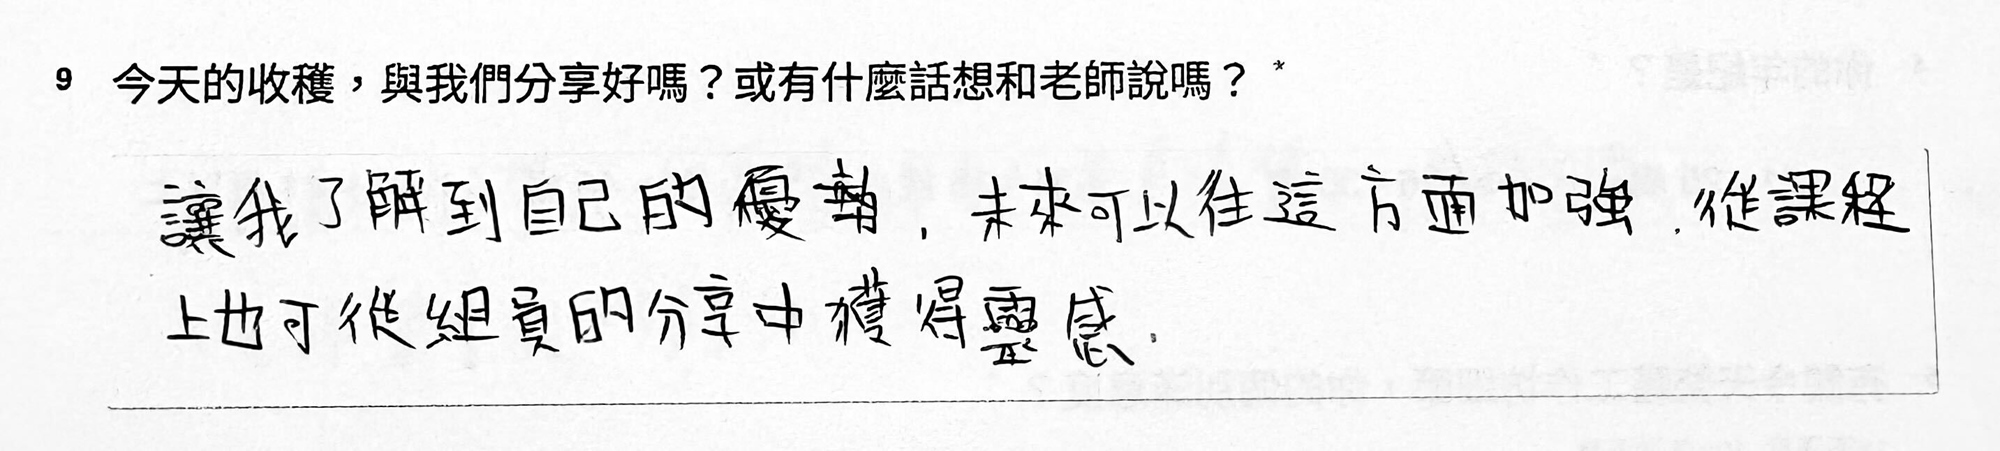 9 今天的收穫，與我們分享好嗎？或有什麼話想和老師說嗎？ *
讓我了解到自己的優勢，未來可以往這方面加強．從課程
上也可從組員的分享中獲得靈感．